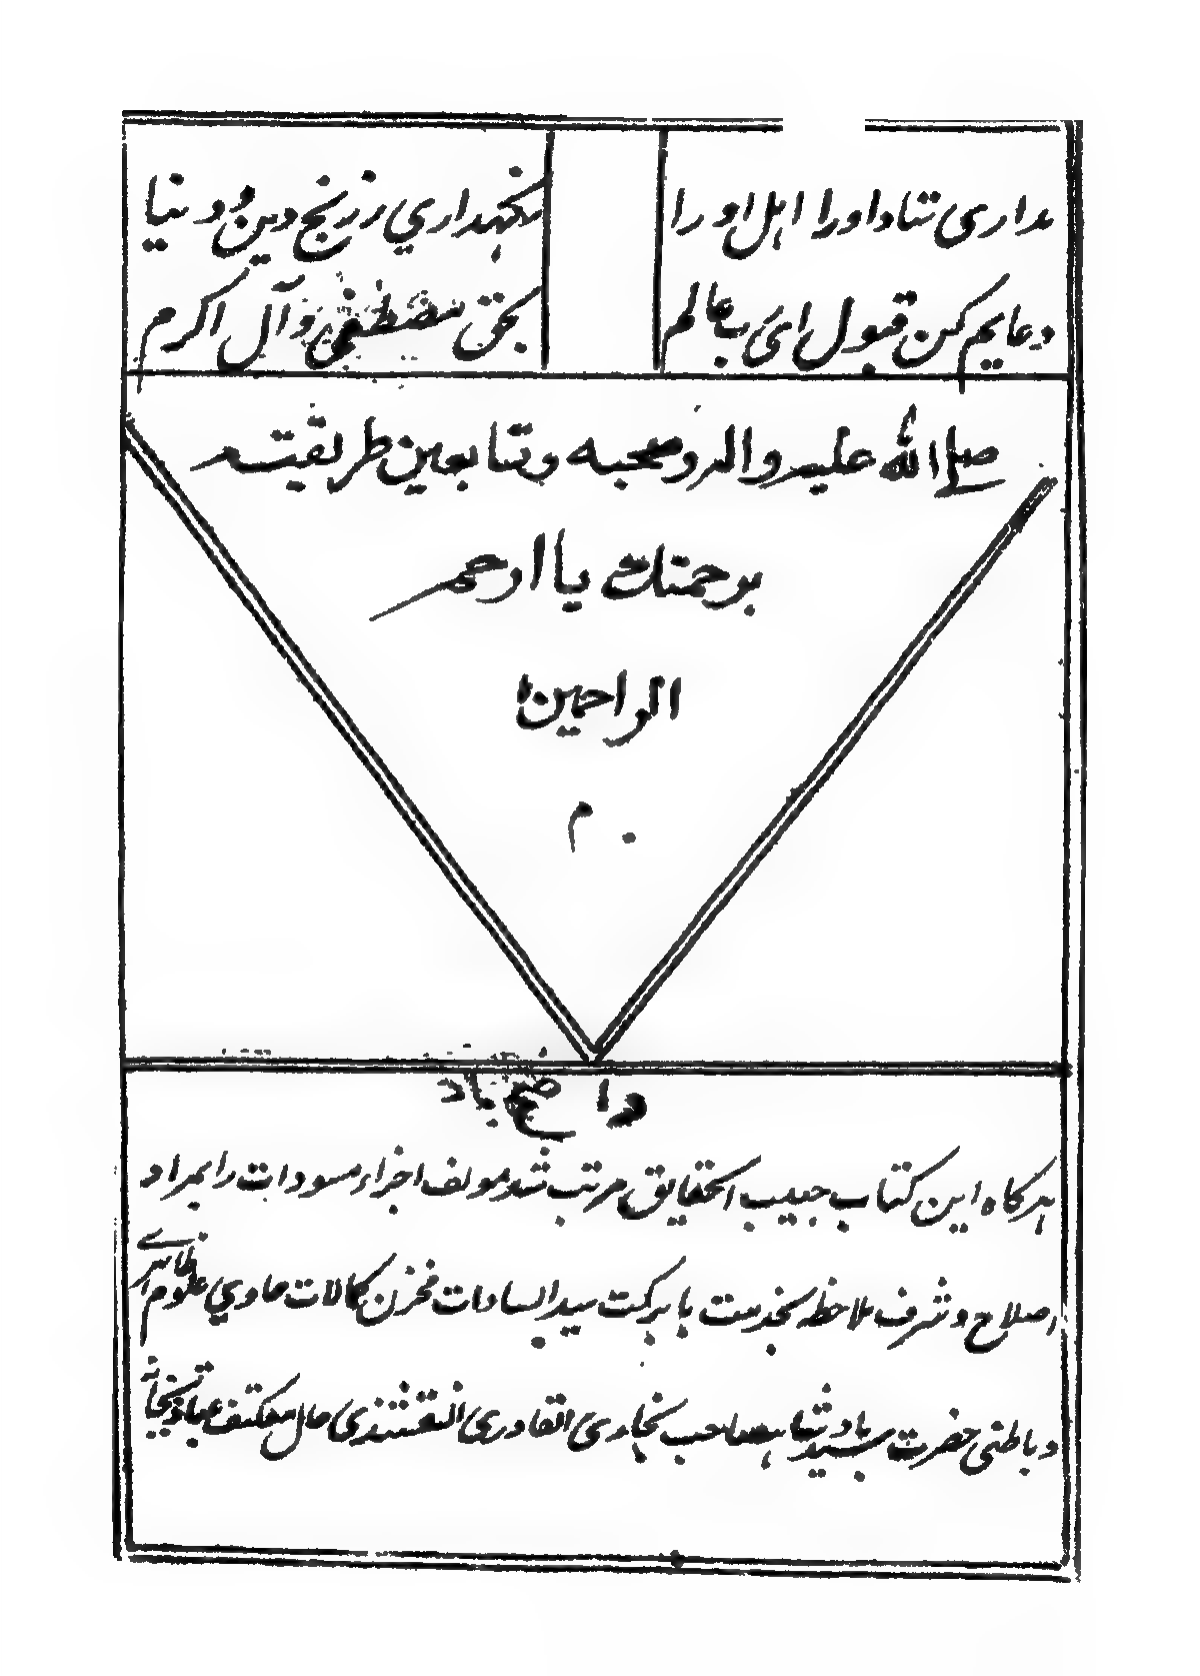 بداری شاد او را اهل او را نگهداري ز رنج دین و دنیا
دعایم کن قبول ای رب عالم بحق مصطفی و آل اکرم
صلی الله علیه واله وصحبه وتابعین طریقته
برحمتك یا ارحم
الراحمین
م
واضح باد
هرگاه این کتاب حبیب الحقایق مرتب شد مولف اجزاء مسودات را بمراد
اصلاح و شرف ملاحظه بخدمت با برکت سید السادات مخزن کمالات حاوي علوم ظاهرے
و باطنی حضرت سید بادشاه صاحب بخاری القادری النقشبندی حال معتکف